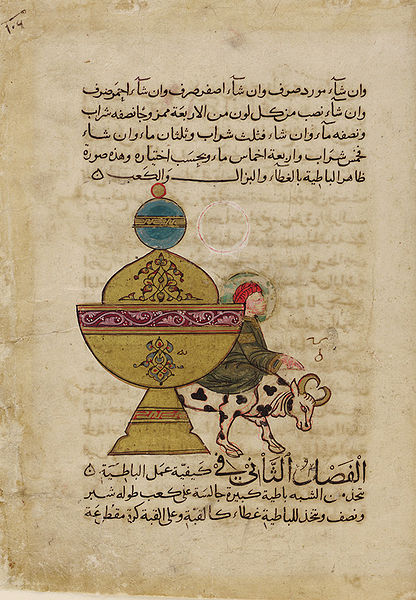 ١٠٦
وان شاء مورد صرف وان شاء اصفر صرف وان شاء احمر صرف
وان شاء نصب من كل لون من الاربعة ممزوجا نصفه شراب
ونصفه ماء وان شاء فثلث شراب وثلثان ماء وان شاء
فخمس شراب واربعة اخماس ماء وبحسب اختياره وهذه صورة
ظاهر الباطية بالغطاء والبزال والكعب ٥
الفصل الثاني في كيفية عمل الباطية ٥
تتخذ من الشبه باطية كبيرة جالسة على كعب طوله شبر
ونصف وتتخذ للباطية غطاء كالقبة وعلى القبة كرة مقطعة